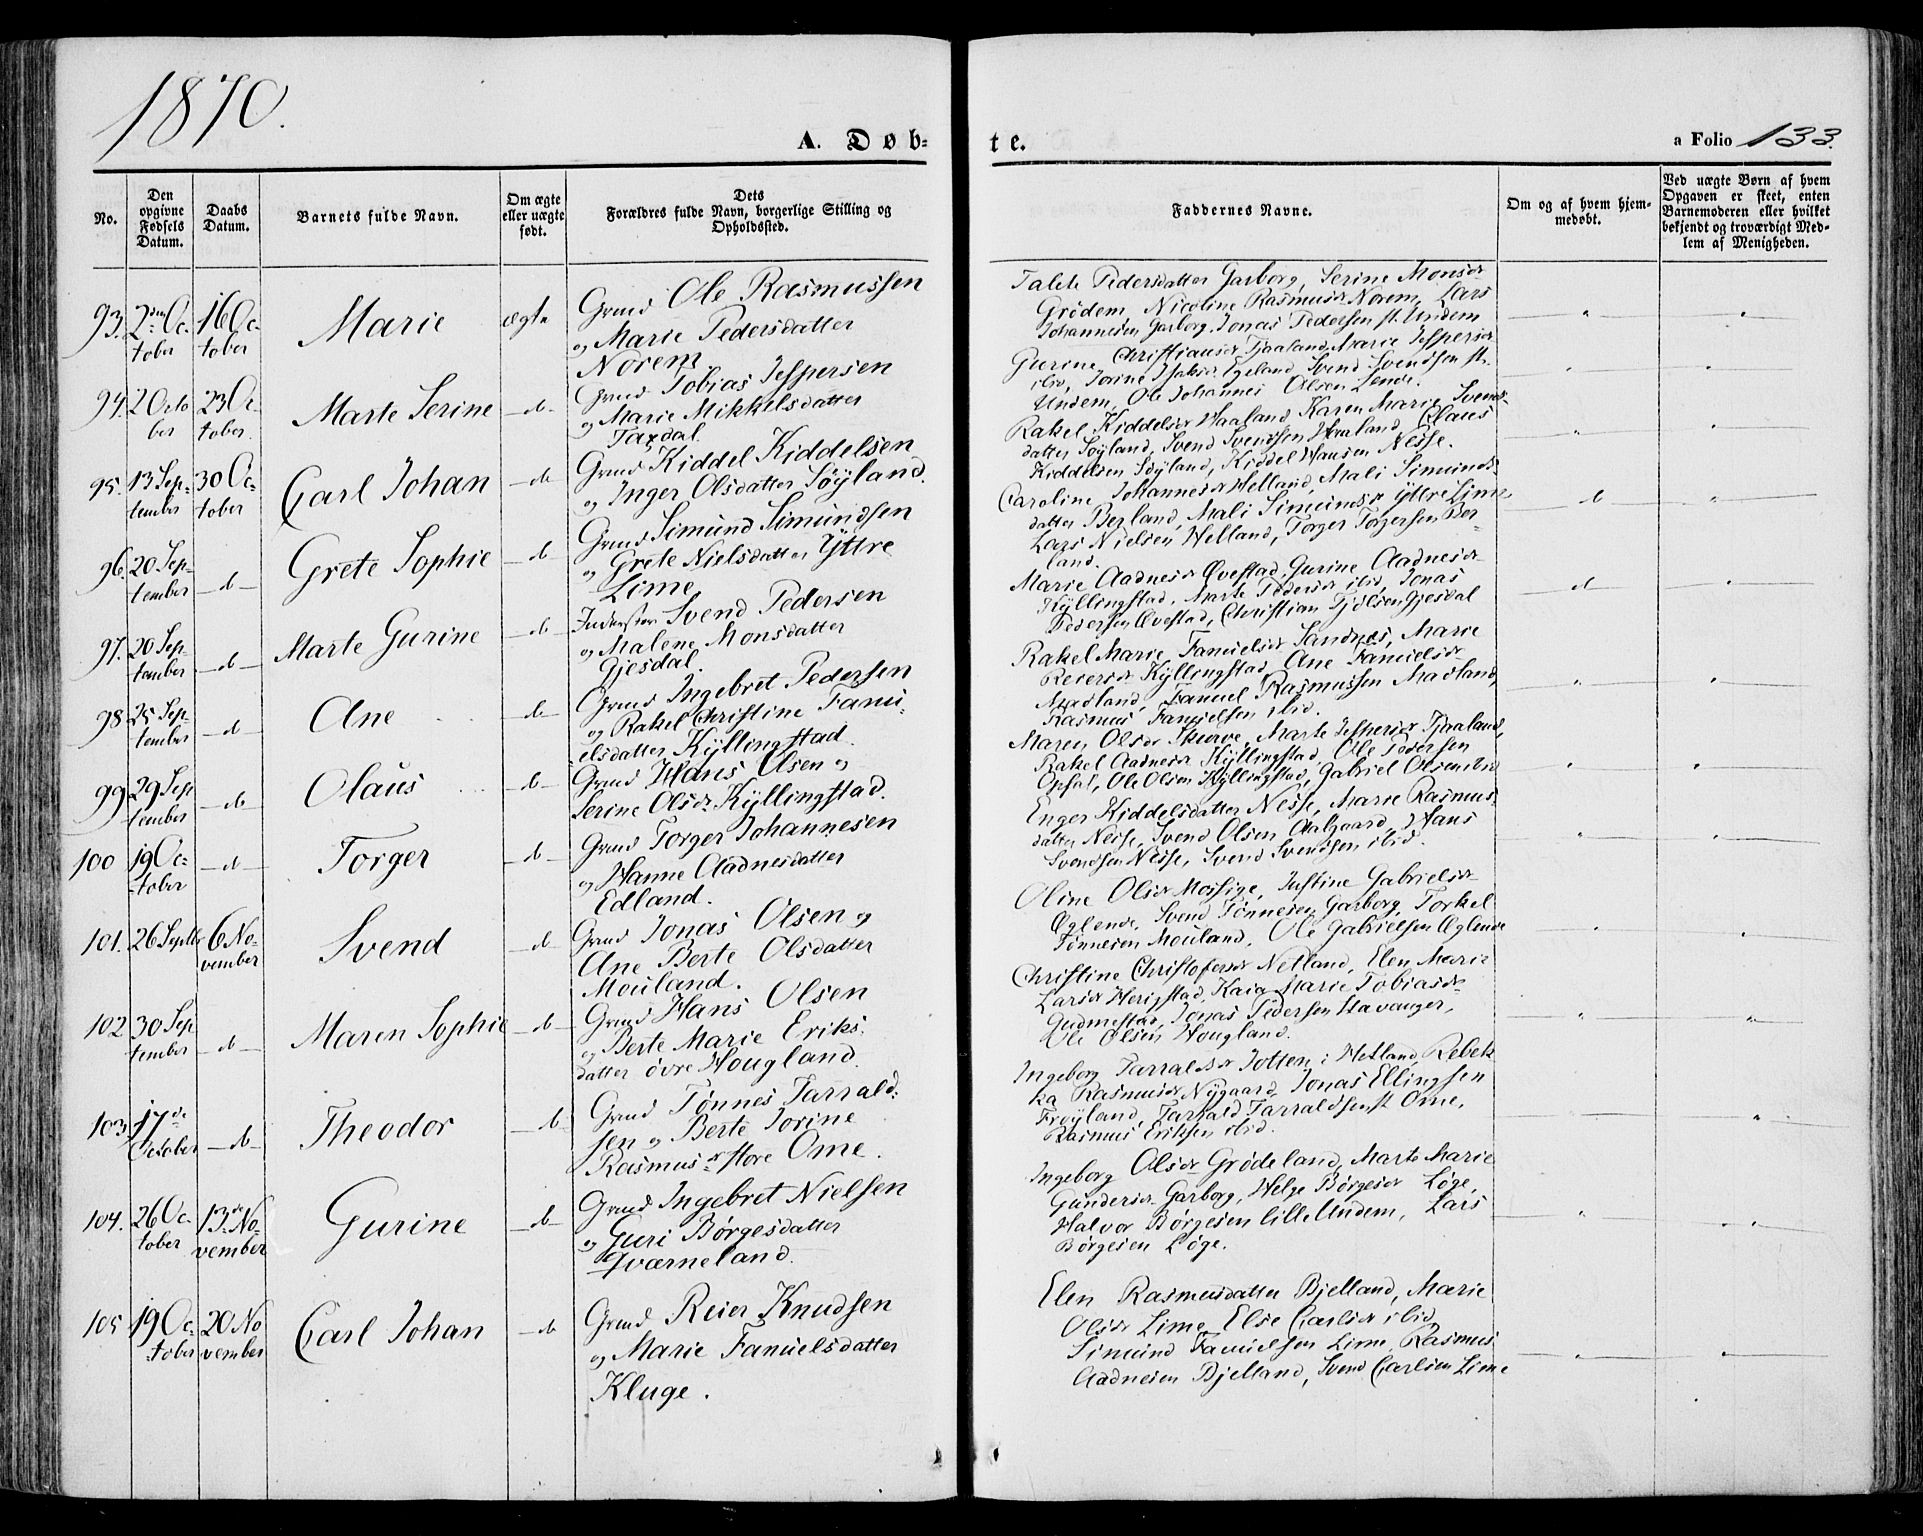 1870.
A. Døb-
te.
a Folio 133.
No.
Den opgivne Fødsels Datum.
Daabs Datum.
Barnets fulde Navn.
Om ægte eller uægte født.
Dets Forældres fulde Navn, borgerlige Stilling og Opholdssted.
Faddernes Navne.
Om og af hvem hjem-
medøbt.
Ved uægte Børn af hvem
Opgaven er skeet, enten
Barnemoderen eller hvilket
bekjendt og troværdigt Med-
lem af Menigheden.
93. 2den Oc-
tober
16 Oc-
tober
Marie
ægte
Grmd Ole Rasmussen
og Marie Pedersdatter
Norem
Talete Pedersdatter Garborg, Serine Monsdr
Grødem, Nicoline Rasmusdr Norem, Lars
Johannesen Garborg, Jonas Pedersen st. Undem
94. 2 Octo
ber
23 Oc-
tober.
Marte Serine
-d-
Grmd Tobias Jespersen
og Marie Mikkelsdatter
Taxdal.
Gurine Christiansdr Tjaaland, Marie Jespersdr
ibid, Jorine Isaksdr Egeland, Svend Svendsen st.
Undem, Ole Johannes Olsen Lende.
95. 13 Sep-
tember
30 Oc-
tober
Carl Johan
-d-
Grmd Kiddel Kiddelsen
og Inger Olsdatter Søyland.
Rakel Kiddelsdr Haaland, Karen Marie Svends-
datter Søyland, Svend Svendsen Haaland, Claus
Kiddelsen Søyland, Kiddel Hansen Nesse.
96. 20 Sep-
tember
-d-
Grete Sophie
-d-
Grmd Simund Simundsen
og Grete Nielsdatter Yttre
Lime
Caroline Johannesdr Helland, Mali Simunds-
datter Berland, Mali Simundsdr Yttre Lime
Lars Nielsen Helland, Torger Torgersen Ber-
land.
97. 20 Sep-
tember
-d-
Marte Gurine
-d-
Inderster Svend Pedersen
og Malene Monsdatter
Gjesdal.
Marie Aadnesdr Ovestad, Gurine Aadnesdr
Kyllingstad, Marte Pedersdr ibid, Jonas
Pedersen Ovestad, Christian Tjølsen Gjesdal
98 25 Sep-
tember
-d-
Ane
-d-
Grmd Ingebret Pedersen
og Rakel Christine Fanu-
elsdatter Kyllingstad.
Rakel Marie Fanuelsdr Sandnes, Marie
Reiersdr Kyllingstad, Ane Fanuelsdr
Madland, Fanuel Rasmussen Madland,
Rasmus Fanuelsen ibid.
99 29 Sep
tember
-d-
Olaus
-d-
Grmd Hans Olsen og
Serine Olsdr Kyllingstad.
Maren Olsdr Skurve, Marte Jespersdr Tjaaland,
Rakel Aadnesdr Kyllingstad, Ole Pedersen
Opsal, Ole Olsen Kyllingstad, Gabriel Olsen ibid
100 19 Oc-
tober
-d-
Torger
-d-
Grmd Torger Johannesen
og Hanne Aadnesdatter
Edland.
Enger Kiddelsdatter Nesse, Marie Rasmus-
datter Nesse, Svend Olsen Aalgaard, Hans
Svendsen Nesse, Svend Svendsen ibid.
101. 26 Septbr
6 No-
vember
Svend
-d-
Grmd Jonas Olsen og
Ane Berte Olsdatter
Mouland.
Oline Olsdr Mossige, Justine Gabrielsdr
Eglende, Svend Tønnesen Garborg, Torkel
Tønnesen Mouland, Ole Gabrielsen Eglende
102 30 Sep
tember
-d-
Maren Sophie
-d-
Grmd Hans Olsen
og Berte Marie Eriks-
datter øvre Hougland.
Christine Christofersdr Netland, Elen Marie
Larsdr Herigstad, Kaia Marie Tobiasdr
Gudmestad, Jonas Pedersen Stavanger,
Ole Olsen Hougland.
103 17de
October
-d-
Theodor
-d-
Grmd Tønnes Tarrald-
sen og Berte Jorine
Rasmusdr store Ome.
Ingeborg Tarraldsdr Jotten i Hetland, Rebek-
ka Rasmusdr Nygaard, Jonas Ellingsen
Frøyland, Tarrald Tarraldsen st Ome,
Rasmus Eriksen ibid.
104. 26 Oc-
tober
13de No-
vember
Gurine
-d-
Grmd Ingebret Nielsen
og Guri Børgesdatter
Qværneland.
Ingeborg Olsdr Grødeland, Marte Marie
Gundersdr Garborg, Helge Børgesdr Løge,
Halvor Børgesen Lille Undem, Lars
Børgesen Løge.
105 19 Oc-
tober
20 No
vember
Carl Johan
-d-
Grmd Reier Knudsen
og Marie Fanuelsdatter
Kluge.
Elen Rasmusdatter Bjelland, Marie
Olsdr Lime, Elie Carlsdr ibid,
Simund Fanuelsen Lime, Rasmus
Aadnesen Bjelland, Svend Carlsen Lime